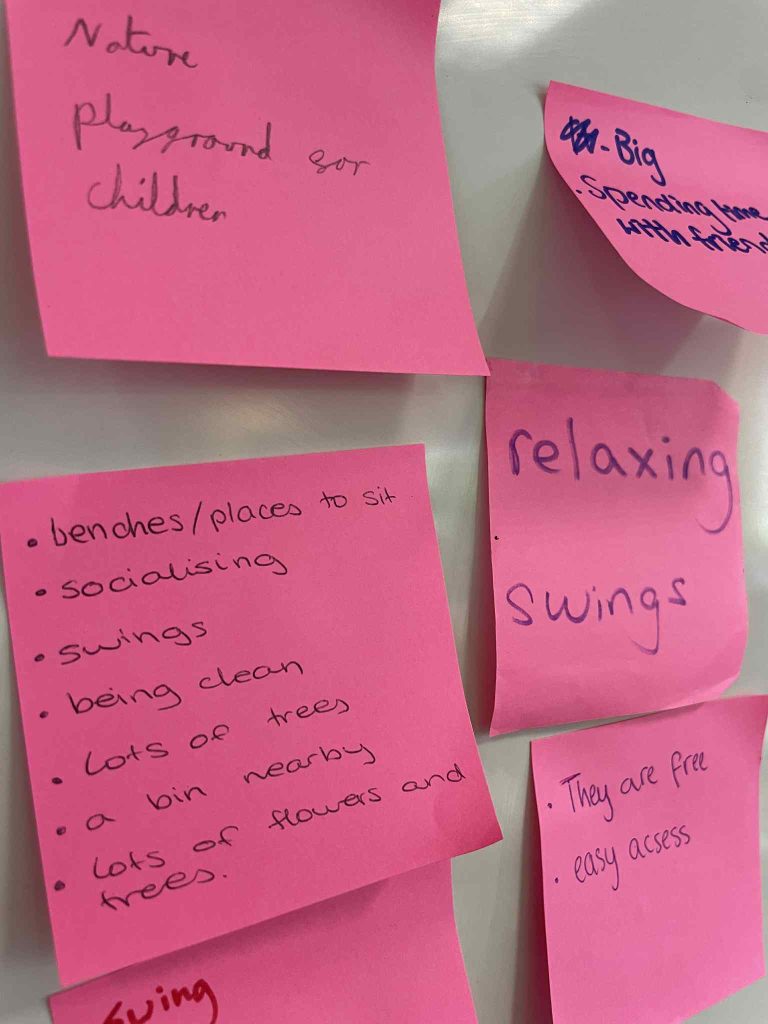 Nature
playground for
children
- Big
. Spending time
with friend
relaxing
swings
• benches/places to sit
• socialising
• swings
• being clean
• Lots of trees
• a bin nearby
• Lots of flowers and
trees.
. They are free
. easy acsess
swing